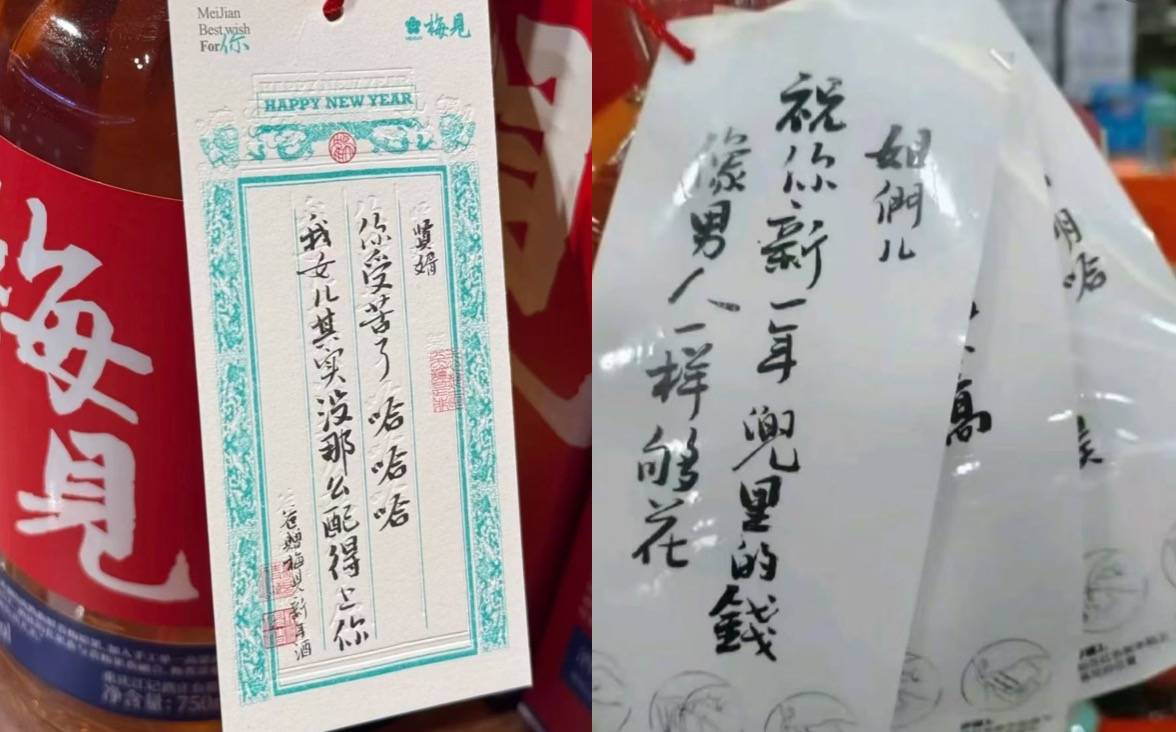 MeiJian
Best wish
For你
梅見
HAPPY NEW YEAR
賢婿
你受苦了 哈哈哈
我女儿其实没那么配得上你
爸赠梅见新年酒
梅見
净含量:750m
姐們儿
祝你新一年 兜里的錢
像男人一样够花
哈
高